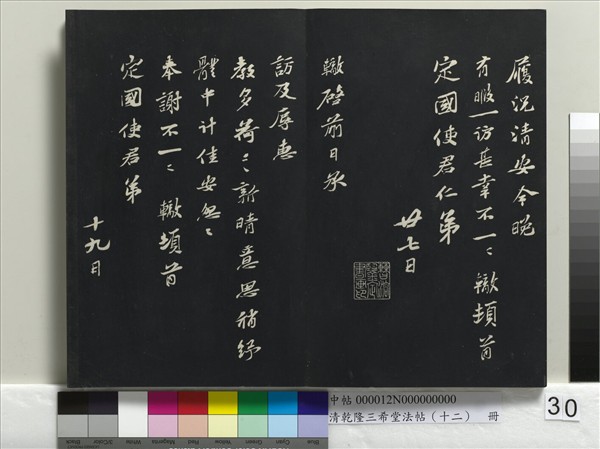 履況清安今晚
有暇一訪甚幸不一〻轍頓首
定國使君仁弟
廿七日
轍啓前日承
訪及辱惠
教多荷〻新晴意思稍紓
體中計佳安怱〻
奉謝不一〻轍頓首
定國使君弟
十九日
中帖 000012N000000000
清乾隆三希堂法帖（十二） 冊
30
Black
3/Color
White
Magenta
Red
Yellow
Green
Cyan
Blue